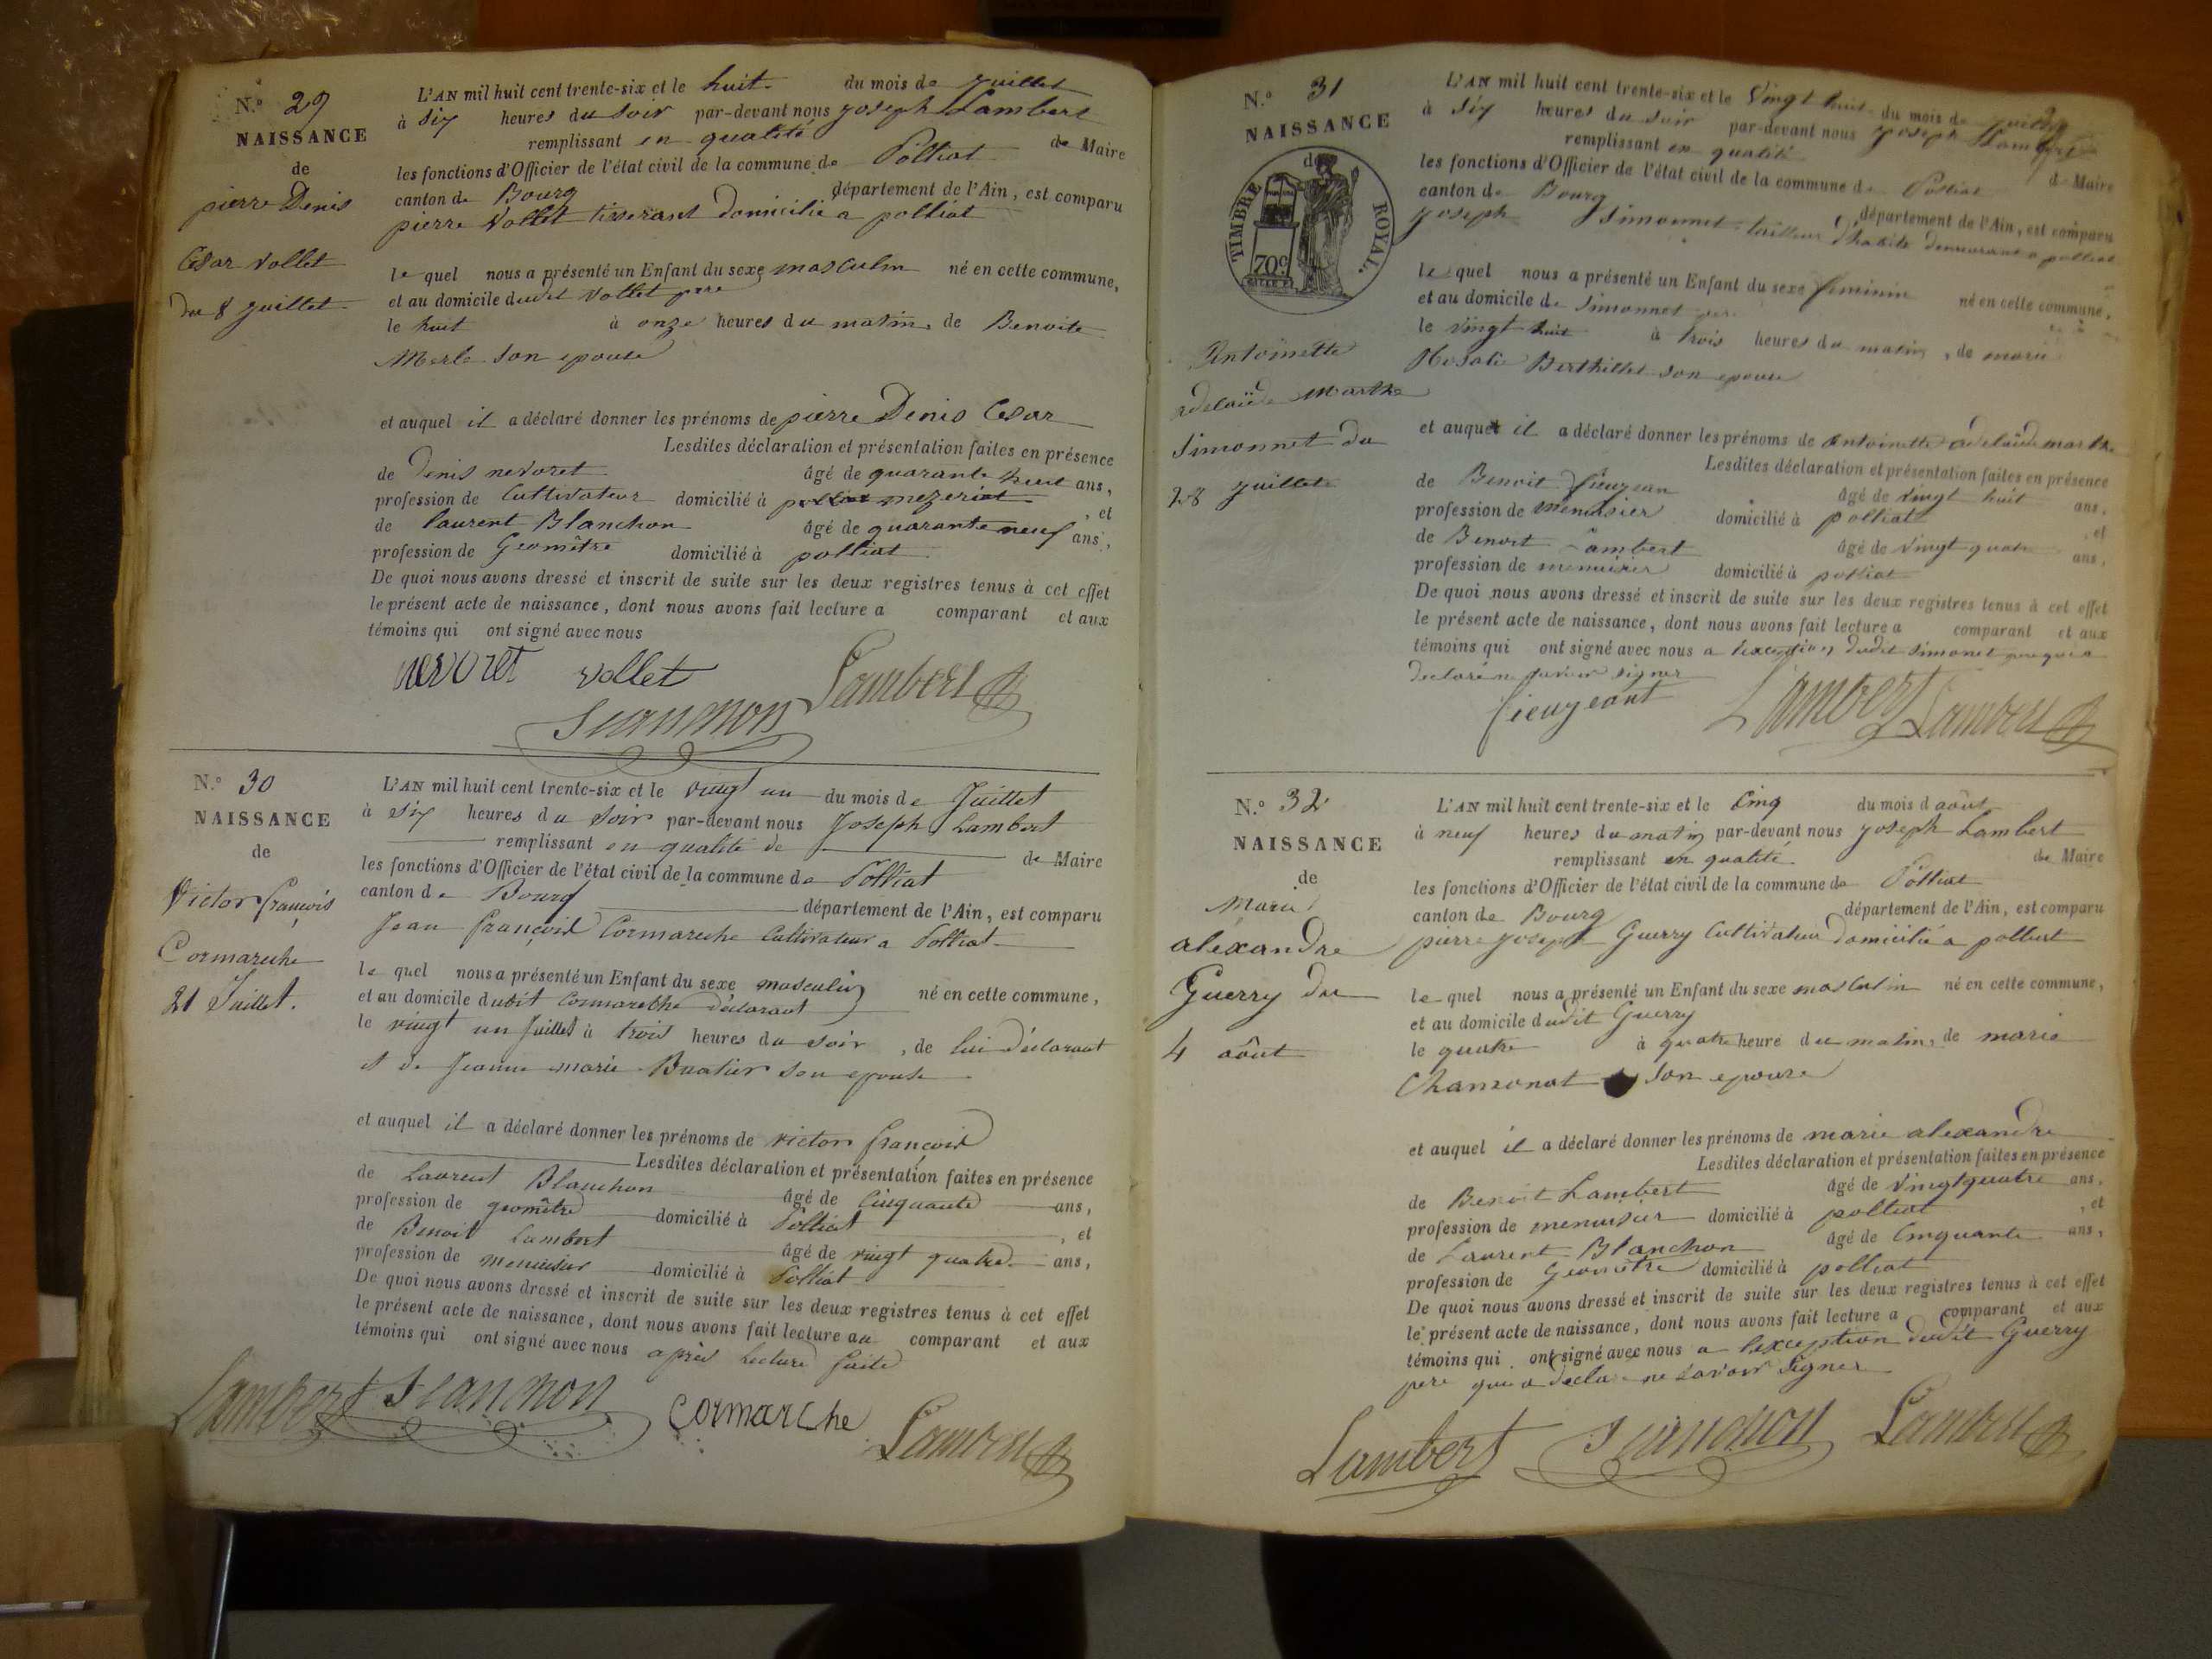 N.º 29
NAISSANCE
de
pierre Denis
Cesar Vollet
du 8 juillet
L'AN mil huit cent trente-six et le huit du mois de juillet
à six heures du soir par-devant nous joseph Lambert
remplissant en qualité de Maire
les fonctions d'Officier de l'état civil de la commune de Polliat
canton de Bourg département de l'Ain, est comparu
pierre Vollet tisserant domicilié a polliat
le quel nous a présenté un Enfant du sexe masculin né en cette commune,
et au domicile dudit Vollet pere
le huit à onze heures du matin, de Benoite
Merle son epouse
et auquel il a déclaré donner les prénoms de pierre Denis Cesar
Lesdites déclaration et présentation faites en présence
de Denis nevoret âgé de quarante huit ans,
profession de Cultivateur domicilié à polliat mezeriat, et
de laurent Blanchon âgé de quarante neuf ans,
profession de Geomêtre domicilié à polliat
De quoi nous avons dressé et inscrit de suite sur les deux registres tenus à cet effet
le présent acte de naissance, dont nous avons fait lecture a comparant et aux
témoins qui ont signé avec nous
nevoret vollet Lambert
Blanchon
N.º 30
NAISSANCE
de
Victor françois
Cormareche
21 Juillet.
L'AN mil huit cent trente-six et le vingt un du mois de Juillet
à six heures du soir par-devant nous Joseph Lambert
remplissant en qualité de de Maire
les fonctions d'Officier de l'état civil de la commune de Polliat
canton de Bourg département de l'Ain, est comparu
Jean françois Cormareche Cultivateur a Polliat
le quel nous a présenté un Enfant du sexe masculin né en cette commune,
et au domicile dudit Cormareche déclarant
le vingt un Juillet à trois heures du soir, de lui déclarant
et de Jeanne marie Buatier son epouse
et auquel il a déclaré donner les prénoms de victor françois
Lesdites déclaration et présentation faites en présence
de Laurent Blanchon âgé de Cinquante ans,
profession de geomêtre domicilié à Polliat, et
de Benoit Lambert âgé de vingt quatre ans,
profession de menuisier domicilié à Polliat
De quoi nous avons dressé et inscrit de suite sur les deux registres tenus à cet effet
le présent acte de naissance, dont nous avons fait lecture au comparant et aux
témoins qui ont signé avec nous après lecture faite
Lambert Blanchon Cormarche Lambert
N.º 31
NAISSANCE
de
TIMBRE ROYAL.
70c
Antoinette
adelaïde Marthe
Simonnet du
28 juillet
L'AN mil huit cent trente-six et le vingt huit du mois de juillet
à six heures du soir par-devant nous joseph Lambert
remplissant en qualité de Maire
les fonctions d'Officier de l'état civil de la commune de Polliat
canton de Bourg département de l'Ain, est comparu
joseph Simonnet tailleur d'habits demeurant a polliat
le quel nous a présenté un Enfant du sexe feminin né en cette commune,
et au domicile de Simonnet
le vingt huit à trois heures du matin, de marie
Rosalie Berthillet son epouse
et auquel il a déclaré donner les prénoms de antoinette adelaïde marthe
Lesdites déclaration et présentation faites en présence
de Benoit âgé de vingt huit ans,
profession de menuisier domicilié à polliat, et
de Benoit Lambert âgé de vingt quatre ans,
profession de menuisier domicilié à polliat
De quoi nous avons dressé et inscrit de suite sur les deux registres tenus à cet effet
le présent acte de naissance, dont nous avons fait lecture a comparant et aux
témoins qui ont signé avec nous a lexception dudit Simonet
declaré ne savoir signer
fieugeant Lambert Lambert
N.º 32
NAISSANCE
de
Marie
alexandre
Guerry du
4 août
L'AN mil huit cent trente-six et le Cinq du mois d août
à neuf heures du matin par-devant nous joseph Lambert
remplissant en qualité de Maire
les fonctions d'Officier de l'état civil de la commune de Polliat
canton de Bourg département de l'Ain, est comparu
pierre joseph Guerry Cultivateur domicilié a polliat
le quel nous a présenté un Enfant du sexe masculin né en cette commune,
et au domicile dudit Guerry
le quatre à quatre heure du matin, de marie
Chamonat son epouse
et auquel il a déclaré donner les prénoms de marie alexandre
Lesdites déclaration et présentation faites en présence
de Benoit Lambert âgé de vingtquatre ans,
profession de menuisier domicilié à polliat, et
de Laurent Blanchon âgé de Cinquante ans,
profession de Geomêtre domicilié à polliat
De quoi nous avons dressé et inscrit de suite sur les deux registres tenus à cet effet
le présent acte de naissance, dont nous avons fait lecture a comparant et aux
témoins qui ont signé avec nous a lexception dudit Guerry
pere qui a declare ne savoir signer
Lambert Blanchon Lambert